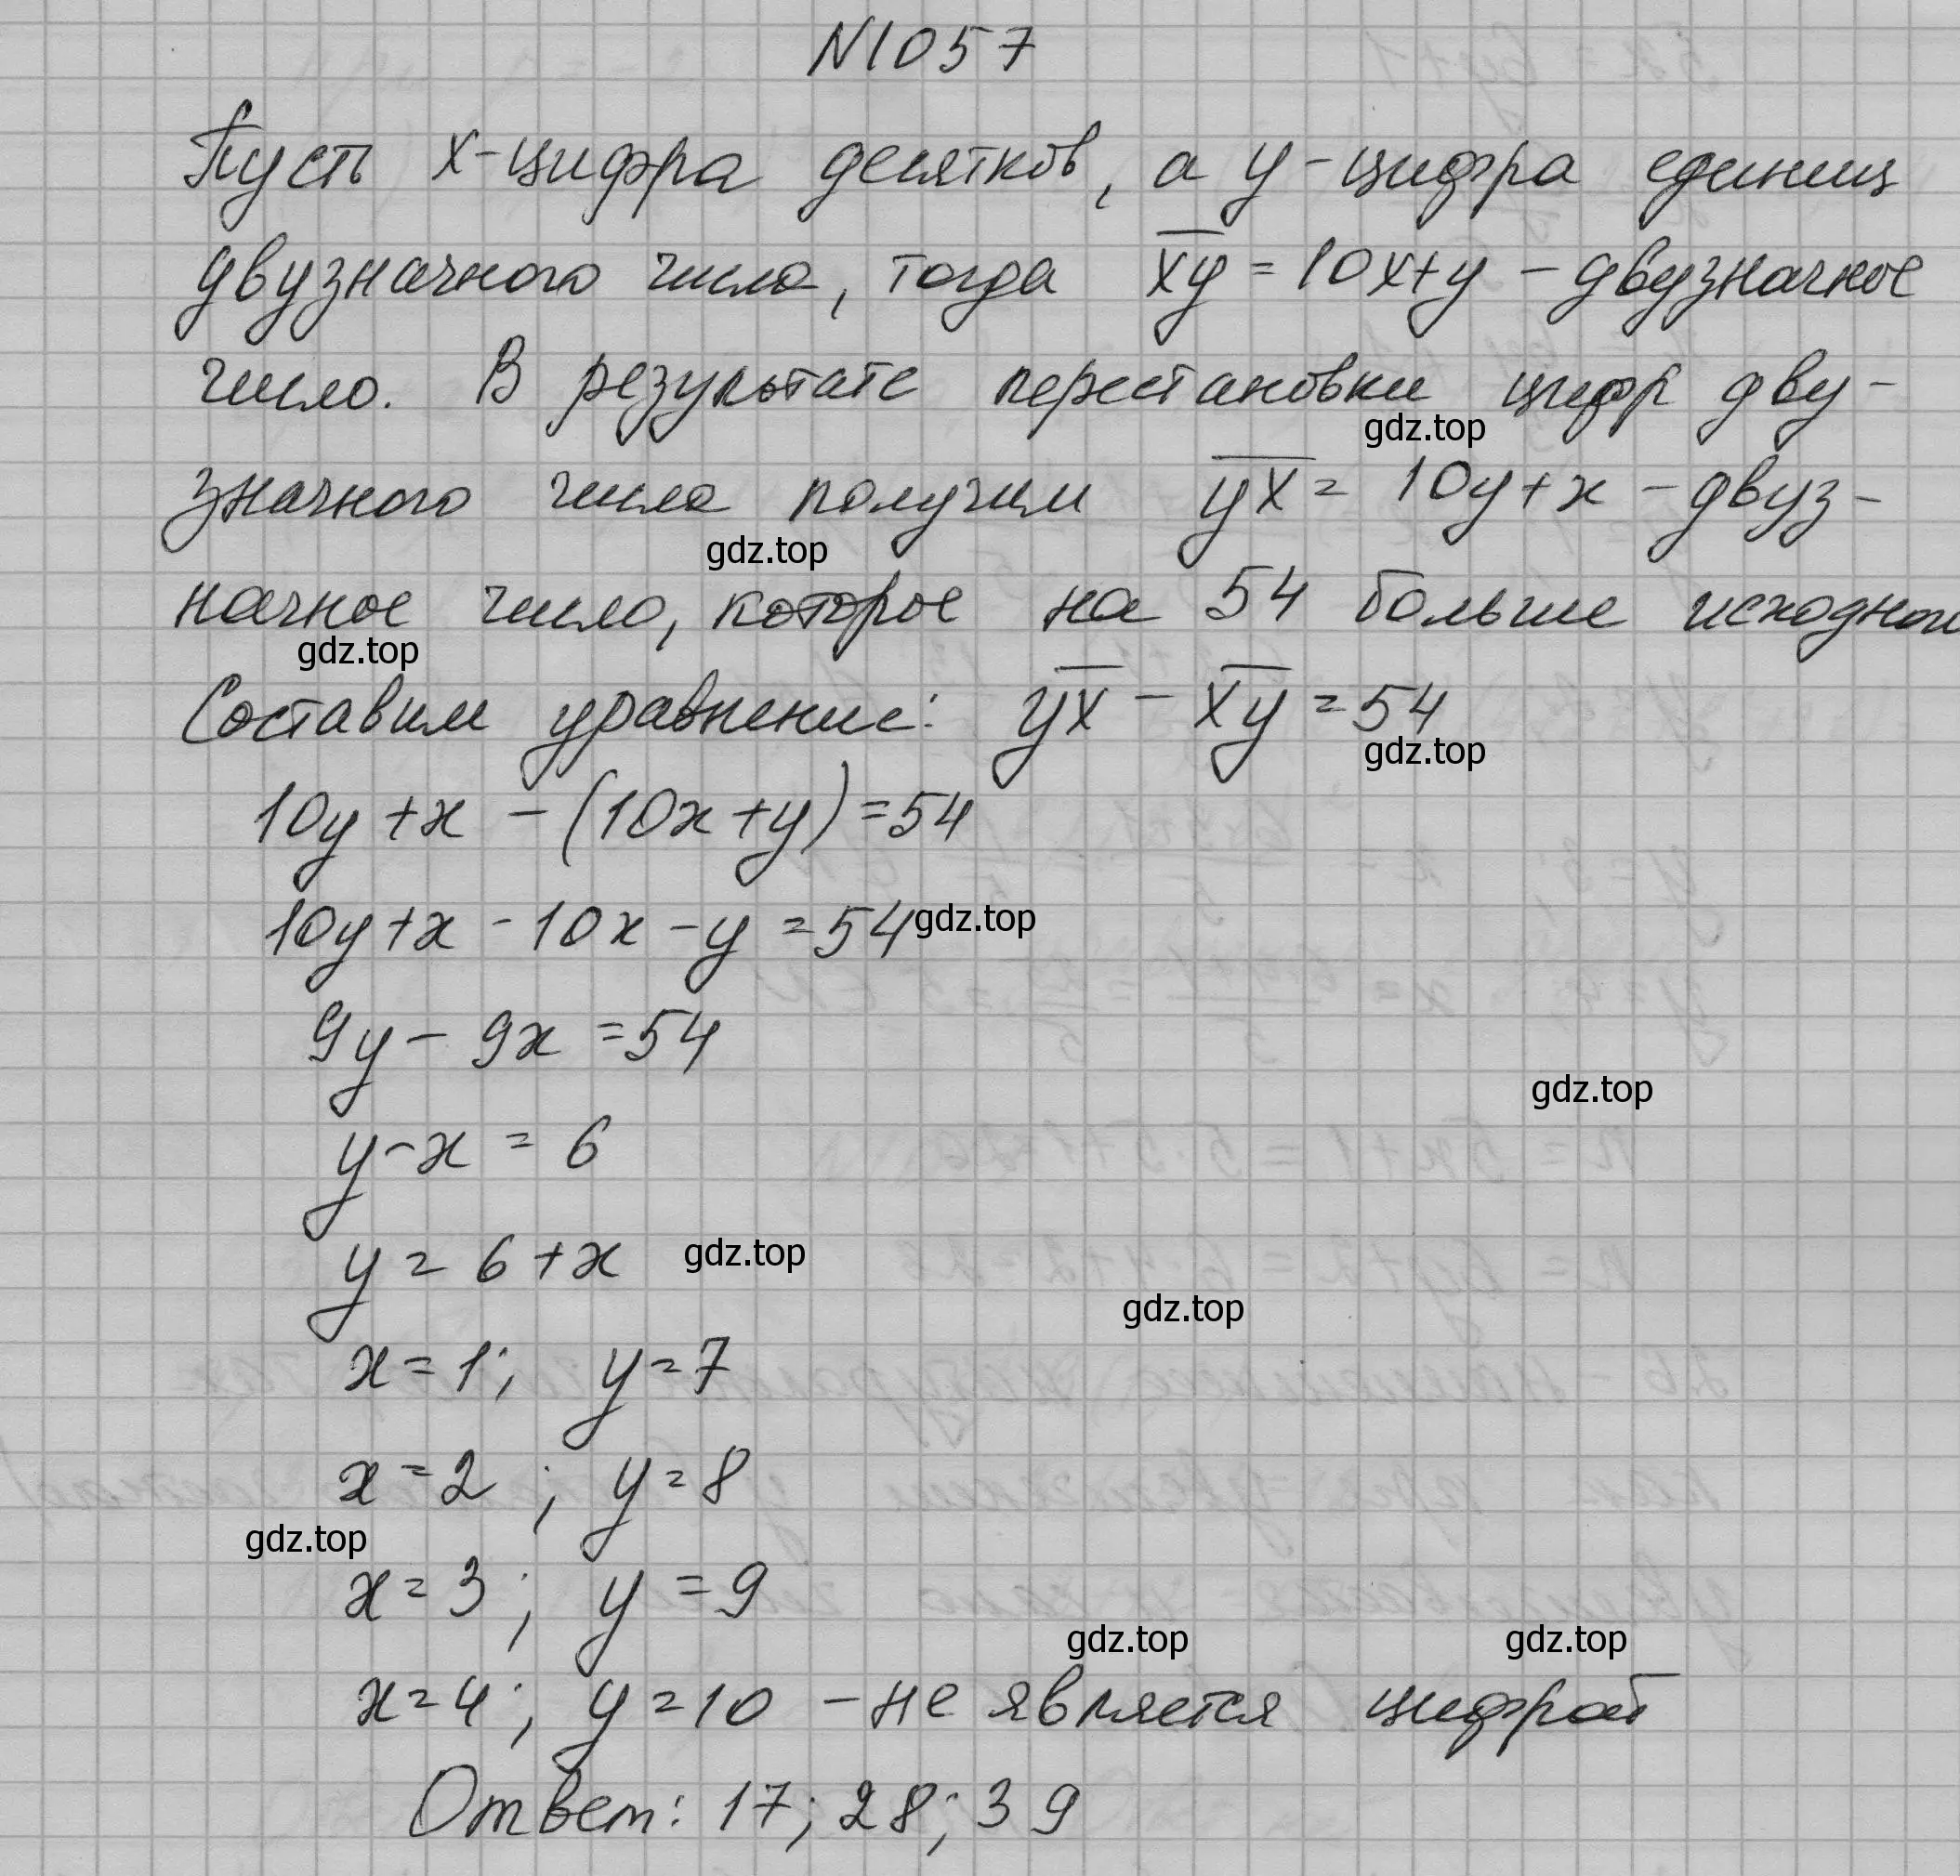 N1057
Пусть x-цифра десятков, а y-цифра единиц
двузначного числа, тогда xy = 10x+y - двузначное
число. В результате перестановки цифр дву-
gdz.top
значного числа получим yx = 10y+x - двуз-
gdz.top
начное число, которое на 54 больше исходного
gdz.top
Составим уравнение: yx - xy = 54
gdz.top
10y+x - (10x+y) = 54
10y+x - 10x - y = 54 gdz.top
9y - 9x = 54
gdz.top
y-x = 6
y = 6+x gdz.top
gdz.top
x=1; y=7
x=2; y=8
gdz.top
x=3; y=9
gdz.top gdz.top
x=4; y=10 - не является цифрой
Ответ: 17; 28; 39